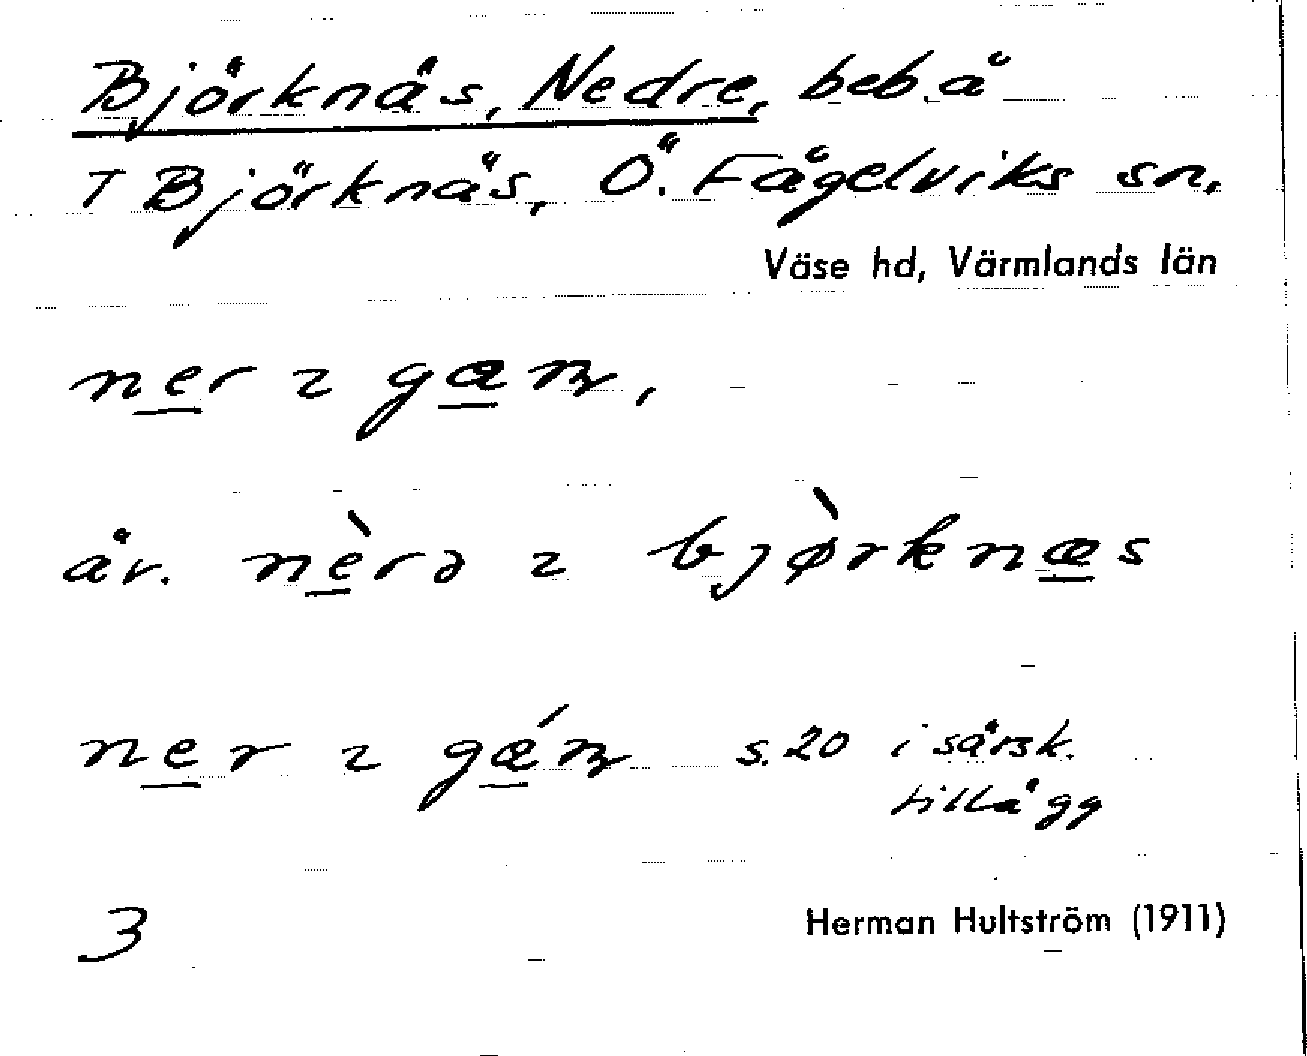 Björknäs, Nedre, beb. å
T Björknäs, Ö. Fågelviks sn,
Väse hd, Värmlands län
ner ɩ gæɲ,
äv. nèrə ɩ bjø̀rknæs
ner ɩ gǽɲ s. 20 i särsk.
tillägg
3
Herman Hultström (1911)